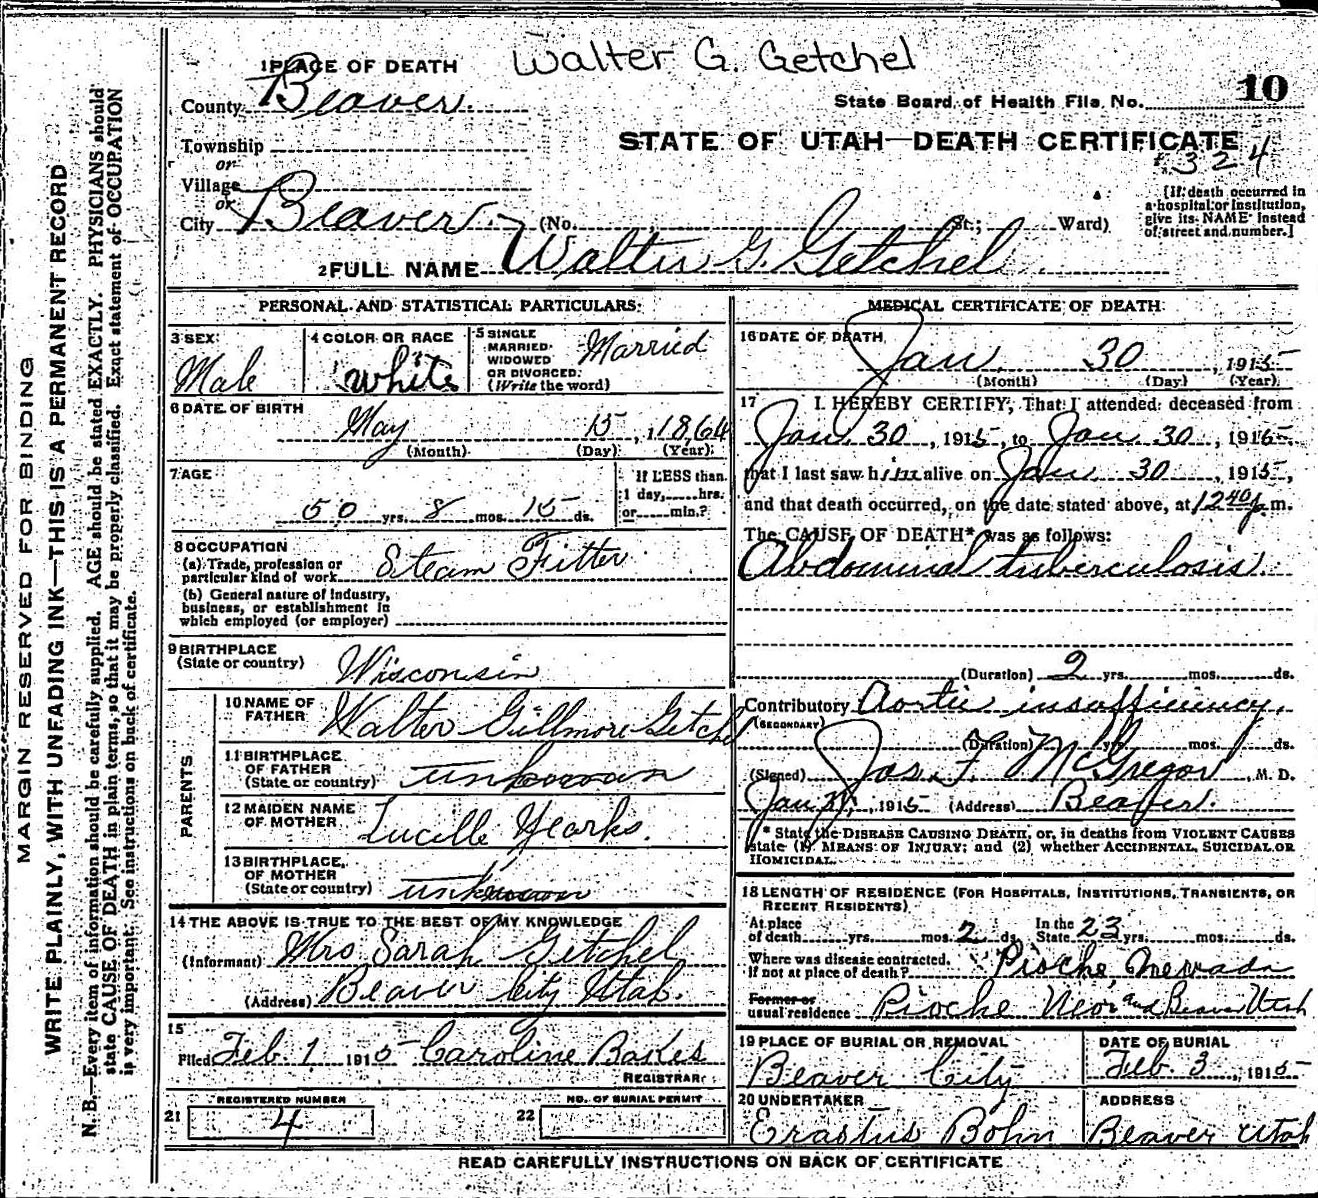 Walter G. Getchel
1 PLACE OF DEATH
County Beaver
State Board of Health File No. 10
Township
STATE OF UTAH—DEATH CERTIFICATE
324
or
Village
or
City Beaver (No. St.; Ward)
[If death occurred in
a hospital or institution,
give its NAME instead
of street and number.]
2 FULL NAME Walter G. Getchel
PERSONAL AND STATISTICAL PARTICULARS
3 SEX
Male
4 COLOR OR RACE
white
5 SINGLE
MARRIED
WIDOWED
OR DIVORCED
(Write the word)
Married
6 DATE OF BIRTH
May 15, 1864
(Month) (Day) (Year)
7 AGE
50 yrs. 8 mos. 15 ds.
If LESS than
1 day, hrs.
or min.?
8 OCCUPATION
(a) Trade, profession or
particular kind of work Steam Fitter
(b) General nature of industry,
business, or establishment in
which employed (or employer)
9 BIRTHPLACE
(State or country) Wisconsin
PARENTS
10 NAME OF
FATHER Walter Gillmore Getchel
11 BIRTHPLACE
OF FATHER
(State or country) unknown
12 MAIDEN NAME
OF MOTHER Lucille Yearks.
13 BIRTHPLACE
OF MOTHER
(State or country) unknown
14 THE ABOVE IS TRUE TO THE BEST OF MY KNOWLEDGE
(Informant) Mrs Sarah Getchel
(Address) Beaver City Utah.
15
Filed Feb. 1 1915 Caroline Bakes
REGISTRAR
21 REGISTERED NUMBER
4
22 NO. OF BURIAL PERMIT
MEDICAL CERTIFICATE OF DEATH
16 DATE OF DEATH
Jan. 30, 1915
(Month) (Day) (Year)
17 I HEREBY CERTIFY, That I attended deceased from
Jan. 30, 1915, to Jan. 30, 1915,
that I last saw him alive on Jan 30, 1915,
and that death occurred, on the date stated above, at 12 40 p.m.
The CAUSE OF DEATH* was as follows:
Abdominal tuberculosis.
(Duration) 2 yrs. mos. ds.
Contributory Aortic insufficiency.
(SECONDARY)
(Duration) yrs. mos. ds.
(Signed) Jas. F. McGregor, M. D.
Jan 31, 1915 (Address) Beaver.
* State the DISEASE CAUSING DEATH, or, in deaths from VIOLENT CAUSES
state (1) MEANS OF INJURY; and (2) whether ACCIDENTAL, SUICIDAL OR
HOMICIDAL.
18 LENGTH OF RESIDENCE (FOR HOSPITALS, INSTITUTIONS, TRANSIENTS, OR
RECENT RESIDENTS)
At place
of death yrs. mos. 2 ds. In the
State 23 yrs. mos. ds.
Where was disease contracted,
if not at place of death? Pioche, Nevada
Former or
usual residence Pioche Nev. and Beaver Utah
19 PLACE OF BURIAL OR REMOVAL
Beaver City
DATE OF BURIAL
Feb. 3, 1915
20 UNDERTAKER
Erastus Bohn
ADDRESS
Beaver Utah
READ CAREFULLY INSTRUCTIONS ON BACK OF CERTIFICATE
MARGIN RESERVED FOR BINDING
WRITE PLAINLY, WITH UNFADING INK—THIS IS A PERMANENT RECORD
N. B.—Every item of information should be carefully supplied. AGE should be stated EXACTLY. PHYSICIANS should
state CAUSE OF DEATH in plain terms, so that it may be properly classified. Exact statement of OCCUPATION
is very important. See instructions on back of certificate.